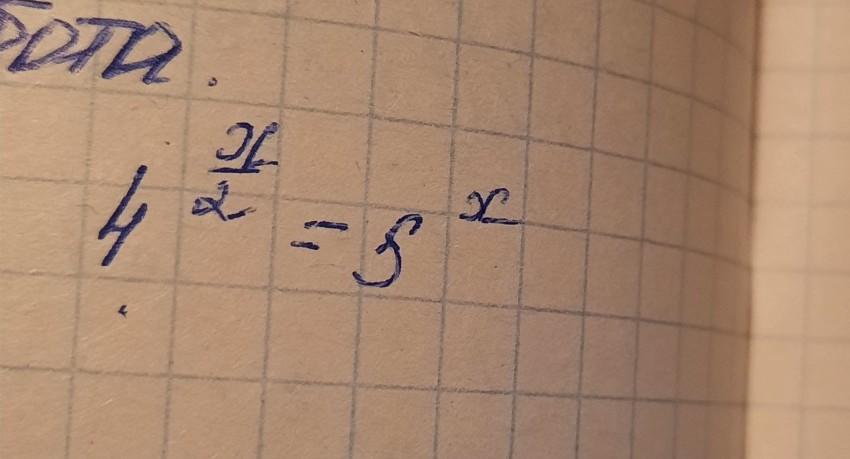 бота.
4^{\frac{x}{2}} = 5^{x}